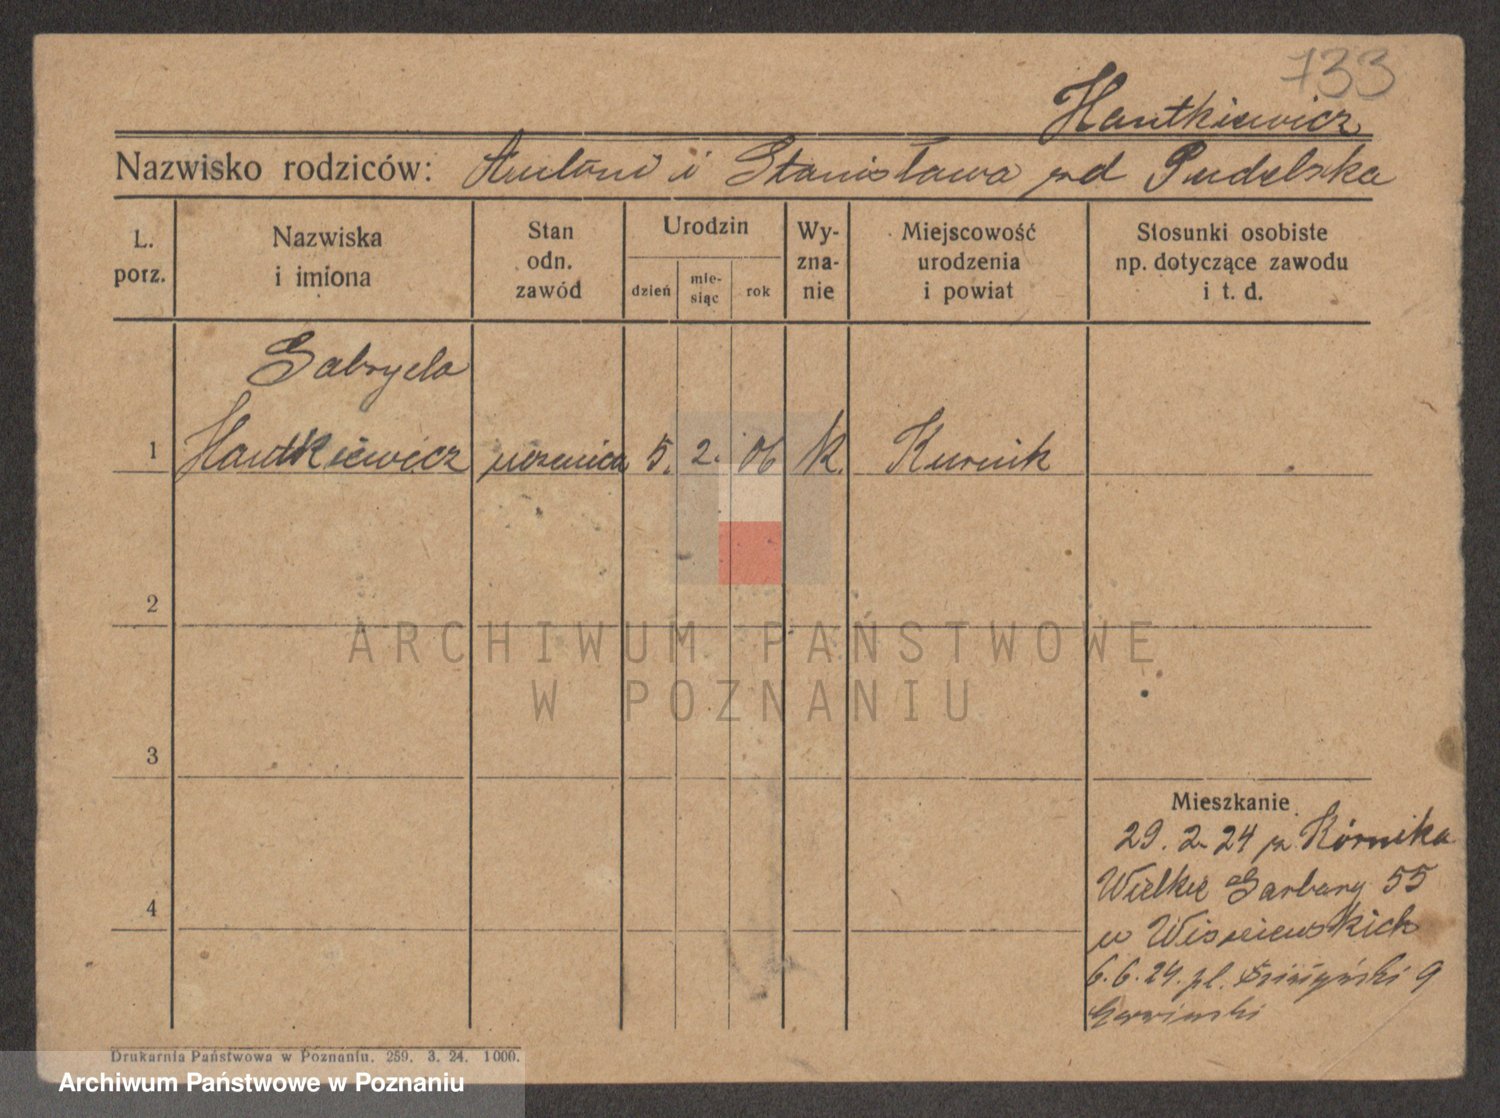 733
Hantkiewicz
Nazwisko rodziców: Antoni i Stanisława zd Pudelska
L. porz.
Nazwiska i imiona
Stan odn. zawód
Urodzin
dzień
mie-siąc
rok
Wy-zna-nie
Miejscowość urodzenia i powiat
Stosunki osobiste np. dotyczące zawodu i t. d.
Gabryela
1 Hantkiewicz uczenica 5. 2. 06 k. Kurnik
2
ARCHIWUM PAŃSTWOWE
W POZNANIU
3
Mieszkanie
29. 2. 24 z Kórnika
4
Wielkie Garbary 55
u Wiśniewskich
6. 6. 24. pl. 9
Drukarnia Państwowa w Poznaniu. 259. 3. 24. 1000.
Archiwum Państwowe w Poznaniu